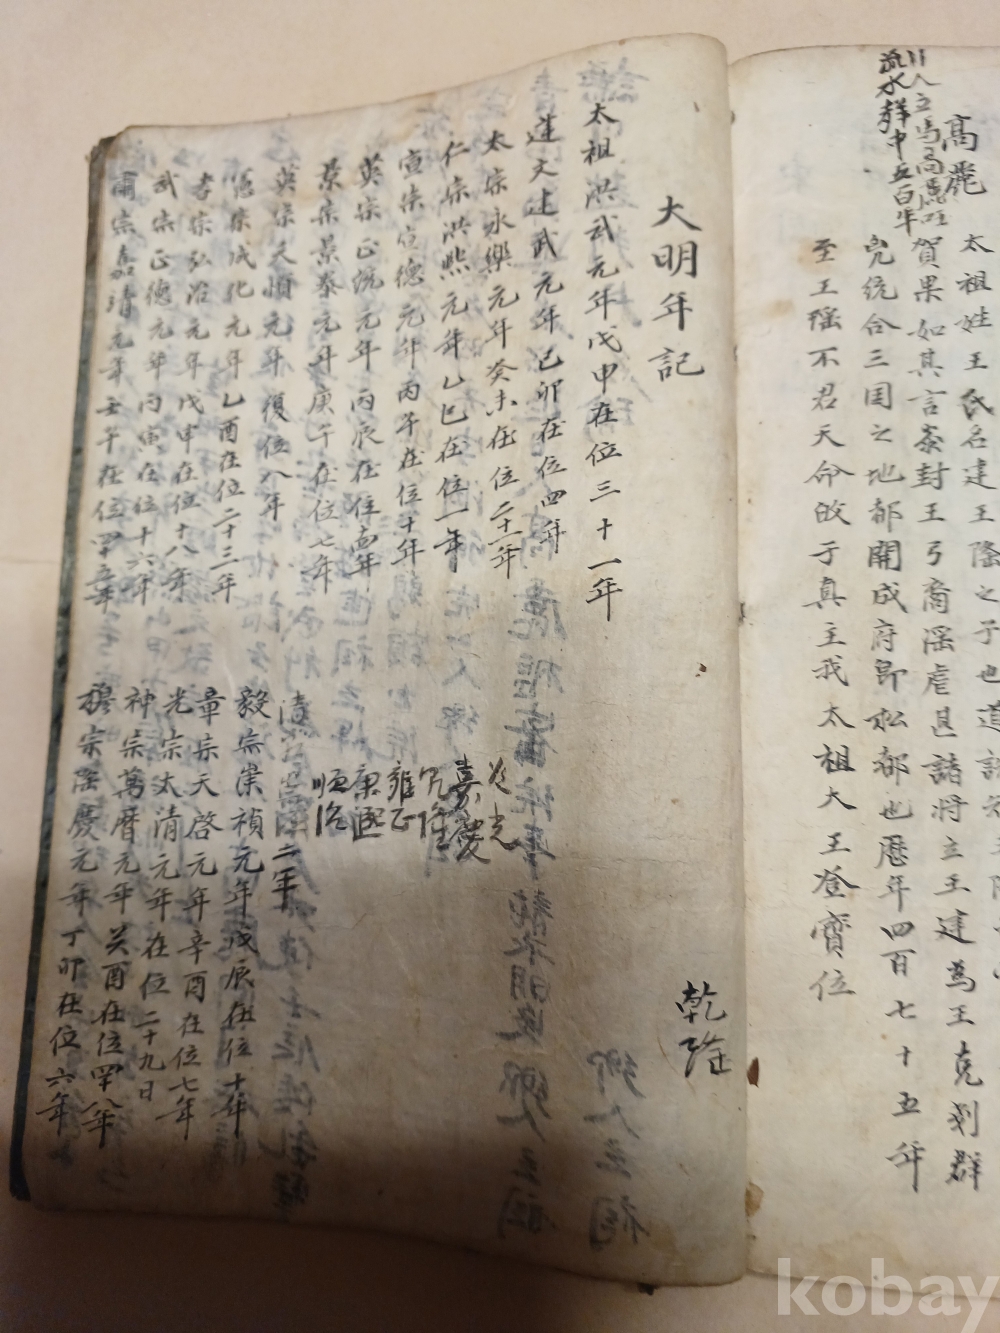 高麗
太祖姓王氏名建王隆之子也道詵
賀果如其言泰封王弓裔淫虐甚諸将立王建為王克剗群
兇統合三国之地都開成府即松都也歷年四百七十五年
至王瑶不君天命皈于真主我太祖大王登寶位
流水群中五百年
大明年記
乾隆
太祖洪武元年戊申在位三十一年
建文建武元年己卯在位四年
太宗永樂元年癸未在位二十二年
仁宗洪熙元年乙巳在位一年
宣宗宣德元年丙午在位十年
英宗正統元年丙辰在位十四年
景宗景泰元年庚午在位七年
英宗天順元年復位八年
憲宗成化元年乙酉在位二十三年
孝宗弘治元年戊申在位十八年
武宗正德元年丙寅在位十六年
肅宗嘉靖元年壬午在位四十五年
道光
嘉慶
雍正
康熙
順治
二年
毅宗崇禎元年戊辰在位十年
章宗天啓元年辛酉在位七年
光宗太清元年在位二十九日
神宗萬曆元年癸酉在位四十八年
穆宗隆慶元年丁卯在位六年
kobay